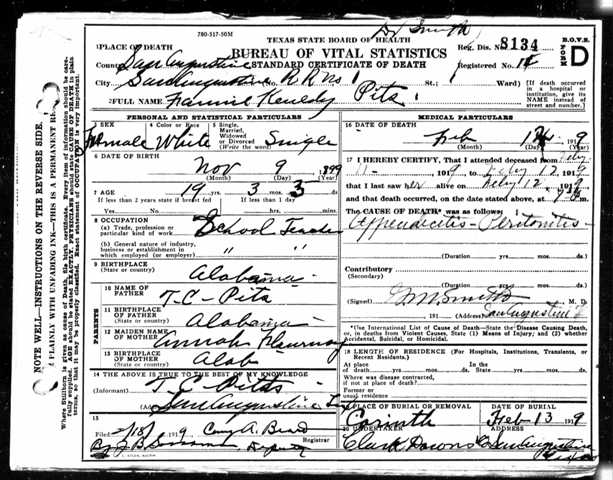 780-517-50M
Dr Smith
TEXAS STATE BOARD OF HEALTH
BUREAU OF VITAL STATISTICS
STANDARD CERTIFICATE OF DEATH
Reg. Dis. 8134
Registered No. 14
B.O.V.S.
FORM D
1 PLACE OF DEATH
County San Augustine
City San Augustine R R No 1 St.; Ward)
(If death occurred in a hospital or institution, give its NAME instead of street and number.)
2 FULL NAME Fannie Kennedy Pitts
PERSONAL AND STATISTICAL PARTICULARS
3 SEX Female
4 Color or Race White
5 Single, Married, Widowed or Divorced (Write the word) Single
6 DATE OF BIRTH
Nov 9 1899
(Month) (Day) (Year)
7 AGE 19 yrs. 3 mos. 3 ds.
If less than 2 years state if breast fed
If less than 1 day
8 OCCUPATION
(a) Trade, profession or particular kind of work School Teacher
(b) General nature of industry, business or establishment in which employed (or employer) " "
9 BIRTHPLACE
(State or country) Alabama
PARENTS
10 NAME OF FATHER T-C-Pitts
11 BIRTHPLACE OF FATHER
(State or country) Alabama
12 MAIDEN NAME OF MOTHER
13 BIRTHPLACE OF MOTHER
(State or country) Alab
14 THE ABOVE IS TRUE TO THE BEST OF MY KNOWLEDGE
(Informant) T.C-Pitts
San Augustine
15
Filed 1919
Registrar
Deputy
MEDICAL PARTICULARS
16 DATE OF DEATH
Feb 12 1919
(Month) (Day) (Year)
17 I HEREBY CERTIFY, That I attended deceased from Feby
11- 1919 to Feby 12 1919
that I last saw her alive on Feby 12 1919
and that death occurred, on the date stated above, at
The CAUSE OF DEATH* was as follows:
Appendicitis - Peritonitis -
(Duration) yrs. mos. ds.
Contributory
(Secondary)
(Duration) yrs. mos. ds.
(Signed) Smith M. D.
191 (Address) San Augustine
*Use International List of Cause of Death—State the Disease Causing Death, or in deaths from Violent Causes, State (1) Means of Injury; and (2) whether Accidental, Suicidal, or Homicidal.
18 LENGTH OF RESIDENCE (For Hospitals, Institutions, Transients, or Recent Residents.)
At place of death yrs. mos. ds. In the State yrs. mos. ds.
Where was disease contracted, if not at place of death?
Former or usual residence
19 PLACE OF BURIAL OR REMOVAL
Corinth
DATE OF BURIAL
Feb 13 1919
20 UNDERTAKER
Clark Downs San Augustine
NOTE WELL—INSTRUCTIONS ON THE REVERSE SIDE.
PLAINLY WITH UNFADING INK—THIS IS A PERMANENT